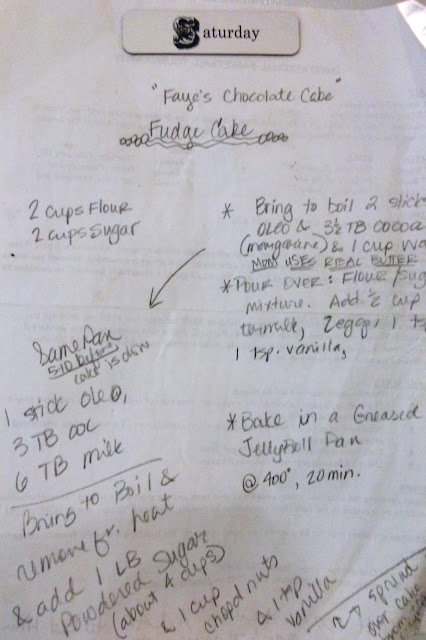 Saturday
"Faye's Chocolate Cake"
Fudge Cake
2 cups Flour
2 cups Sugar
* Bring to boil 2 stick
oleo & 3½ TB cocoa
(margarine) & 1 cup wa
MOM USES REAL BUTTER
* Pour over: Flour/Sug
mixture. Add ½ cup
2 eggs, 1 t
1 tsp. vanilla,
* Bake in a Greased
Jelly Roll Pan
@ 400°, 20 min.
Same Pan
5-10 before
cake is done
1 stick oleo,
3 TB coc
6 TB milk
Bring to Boil &
remove fr. heat
& add 1 LB
Powdered Sugar
(about 4 cups)
& 1 cup
chopd nuts
& 1 tsp
vanilla
spread
over cake